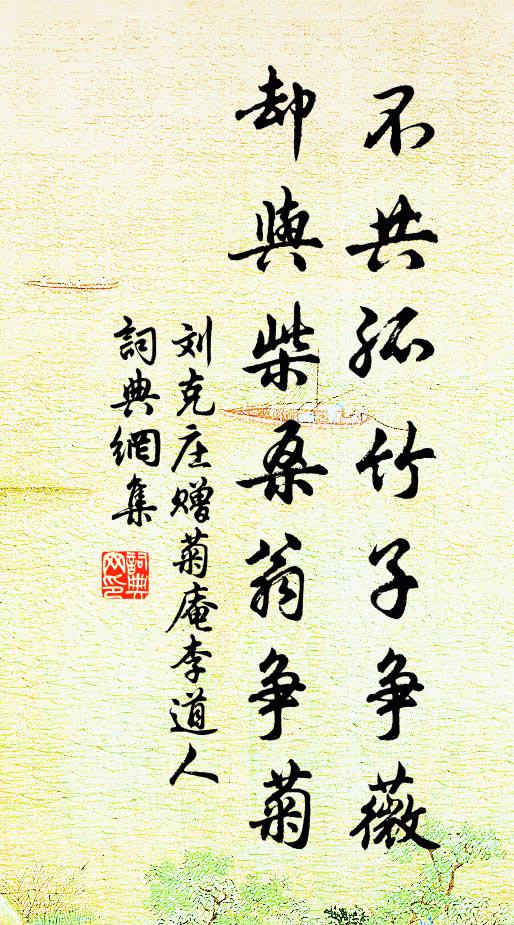 不共孤竹子争薇
却與柴桑翁争菊
刘克庄赠菊庵李道人
詞典網集
詞典
网印